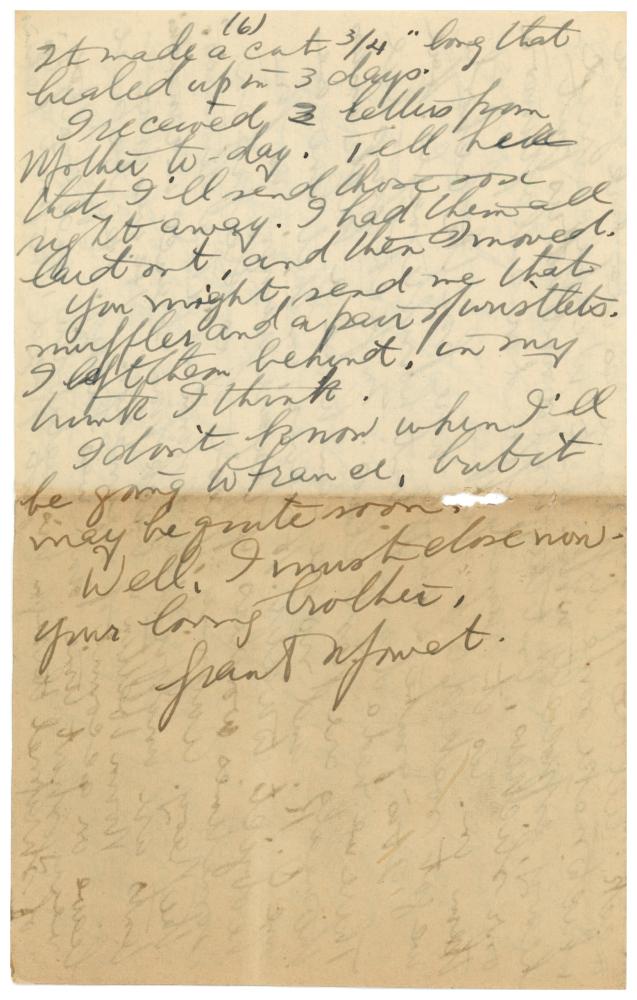 (6)
It made a cut 3/4" long that
healed up in 3 days.
I received 2 letters from
Mother to-day. Tell her
that I'll send those sox
right away. I had them all
laid out, and then I moved.
You might send me that
muffler and a pair of wristlets.
I left them behind, in my
trunk I think.
I don't know when I'll
be going to France, but it
may be quite soon.
Well, I must close now.
Your loving brother,
Grant